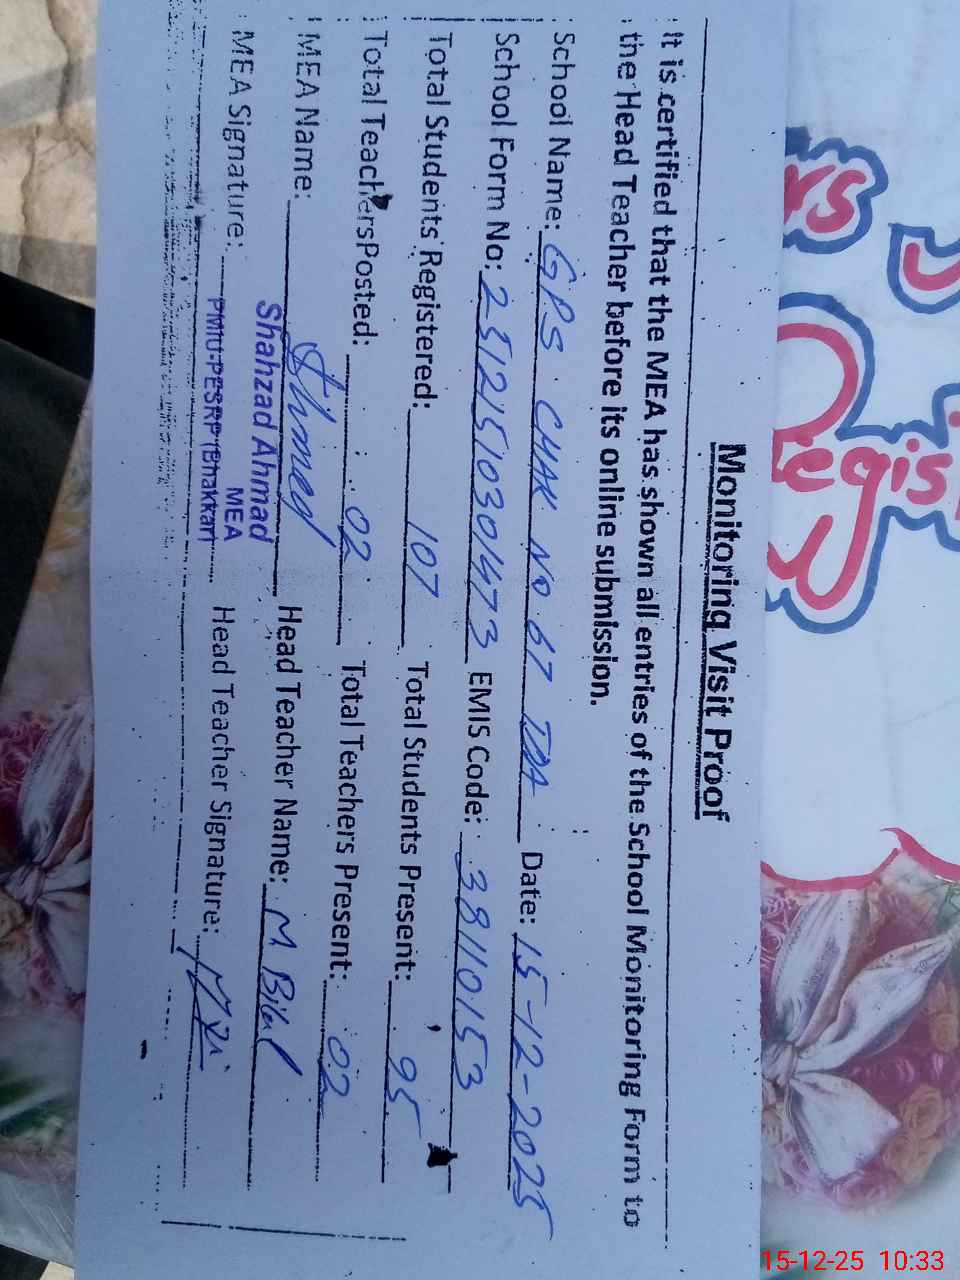 Monitoring Visit Proof
It is certified that the MEA has shown all entries of the School Monitoring Form to
the Head Teacher before its online submission.
School Name: GPS CHAK NO 67 TDA Date: 15-12-2025
School Form No: 23121510301473 EMIS Code: 38110153
Total Students Registered: 107 Total Students Present: 95
Total Teachers Posted: 02 Total Teachers Present: 02
MEA Name: Ahmed Head Teacher Name: M Bilal
Shahzad Ahmad
MEA
MEA Signature: PMIU-PESRP (Bhakkar) Head Teacher Signature:
Regis
15-12-25 10:33